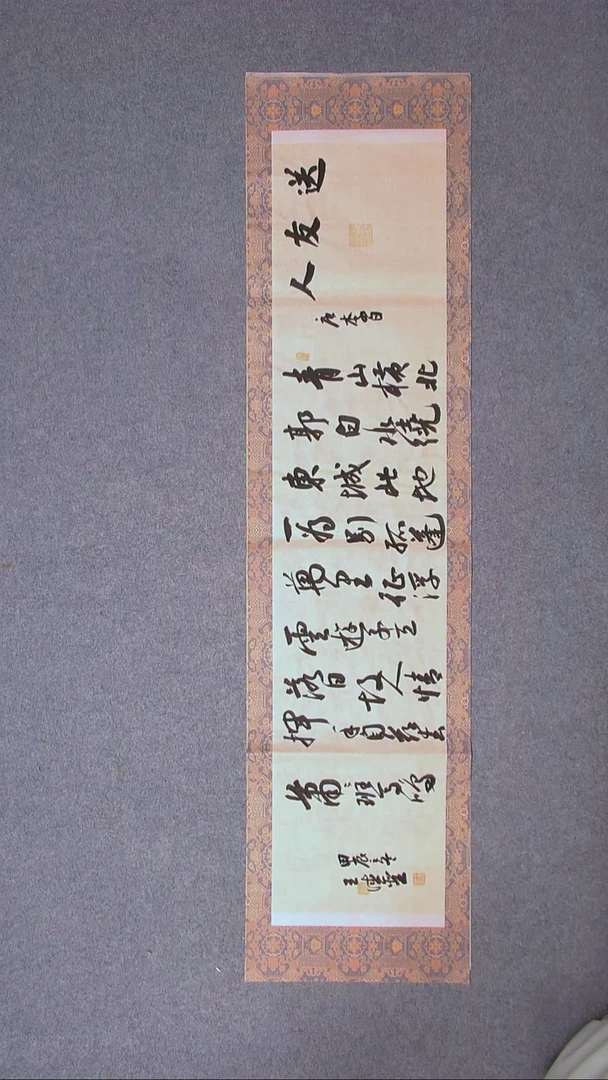 送友人
唐李白
青山横北
郭白水繞
東城此地
一為別孤蓬
萬里征浮
雲遊子意
落日故人情
揮手自茲去
蕭〻班馬鳴
甲辰
王